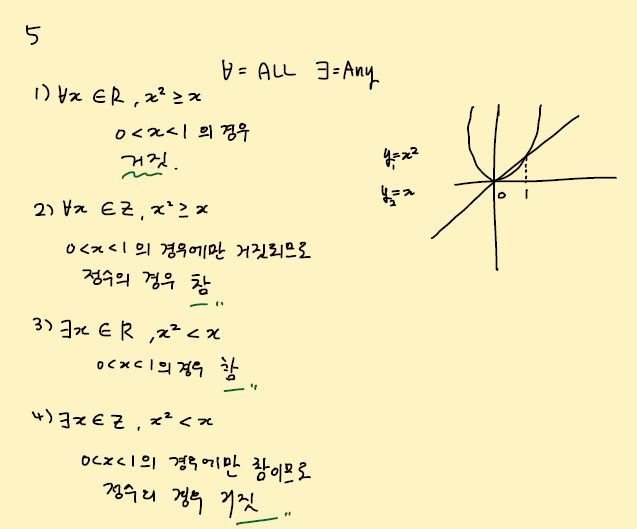 5
∀ = ALL ∃ = Any
1) ∀x ∈ R , x² ≥ x
0 < x < 1 의 경우
거짓.
y₁ = x²
y₂ = x
0 1
2) ∀x ∈ Z, x² ≥ x
0 < x < 1 의 경우에만 거짓되므로
정수의 경우 참
3) ∃x ∈ R , x² < x
0 < x < 1 의 경우 참
4) ∃x ∈ Z , x² < x
0 < x < 1 의 경우에만 참이므로
정수의 경우 거짓